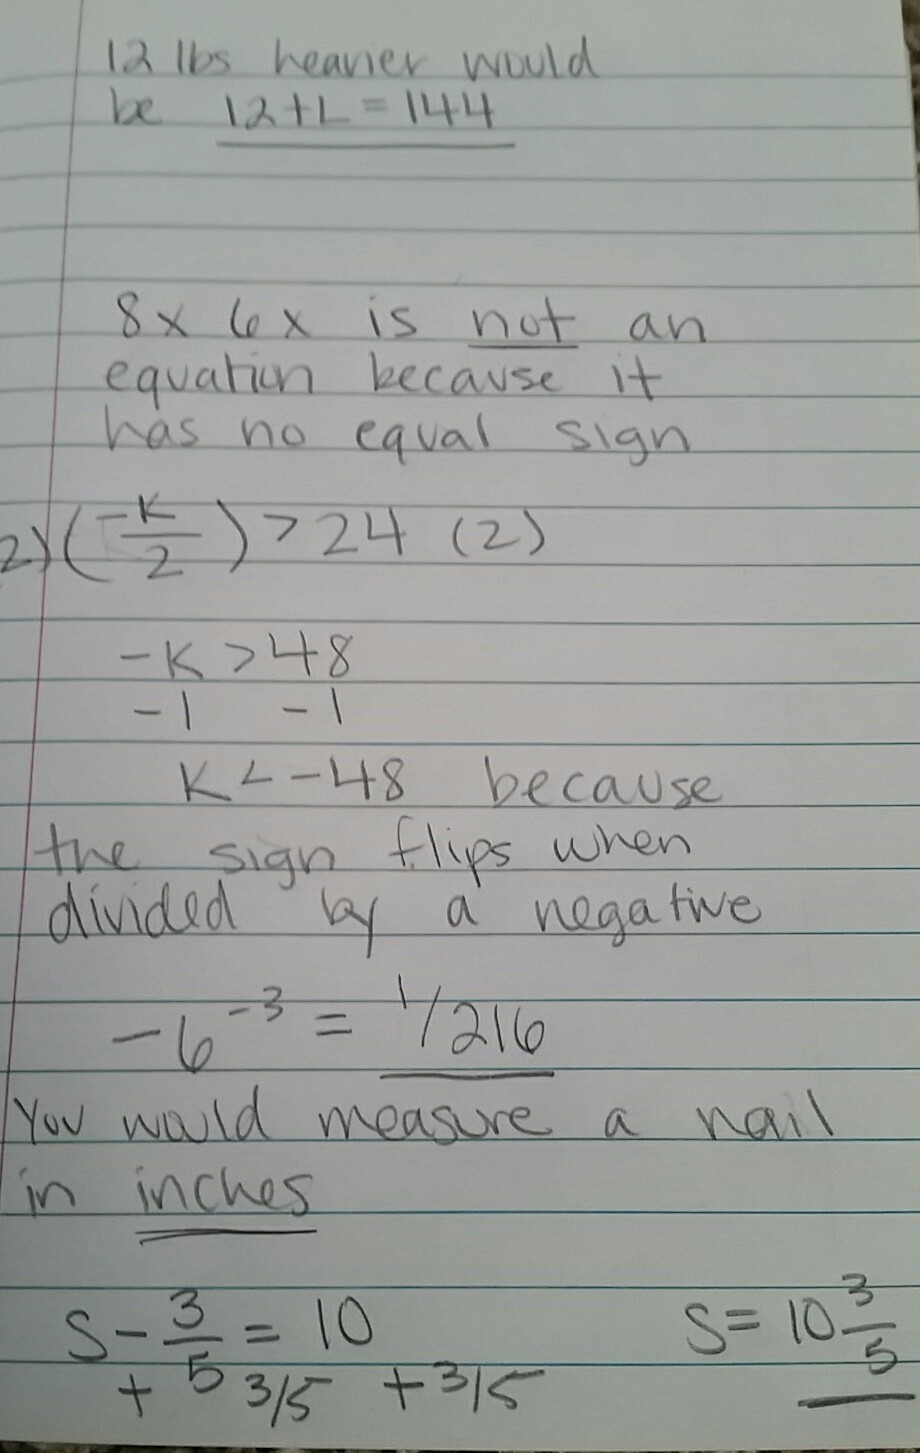 12 lbs heavier would
be 12+L=144
8x 6x is not an
equation because it
has no equal sign
2)(-K/2)>24 (2)
-K>48
-1 -1
K<-48 because
the sign flips when
divided by a negative
-6^-3 = 1/216
You would measure a nail
in inches
S-3/5=10 S=10 3/5
+ 3/5 +3/5